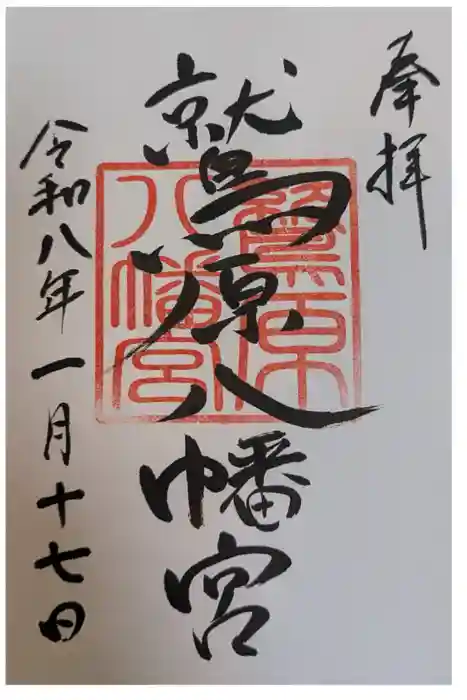 奉拝
鷲原八幡宮
鷲原八幡宮
令和八年一月十七日